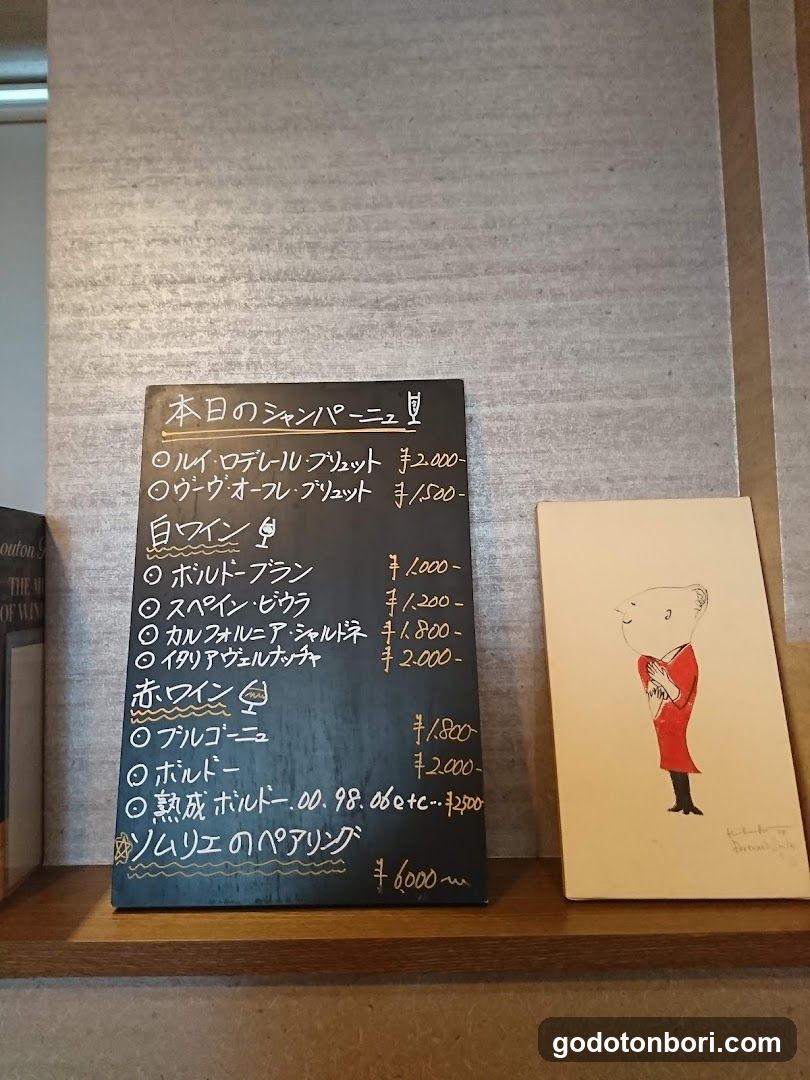 本日のシャンパーニュ
⊙ルイ・ロデレール・ブリュット ¥2.000-
⊙ヴーヴ・オーフレ・ブリュット ¥1,500-
白ワイン
⊙ボルドーブラン ¥1.000-
⊙スペイン・ビウラ ¥1,200-
⊙カルフォルニア・シャルドネ ¥1.800-
⊙イタリアヴェルナッチャ ¥2.000-
赤ワイン
⊙ブルゴーニュ ¥1.800-
⊙ボルドー ¥2.000-
⊙熟成ボルドー.00.98.06etc… ¥2500
☆ソムリエのペアリング
¥6,000〜
outon
THE M
OF WIN
godotonbori.com